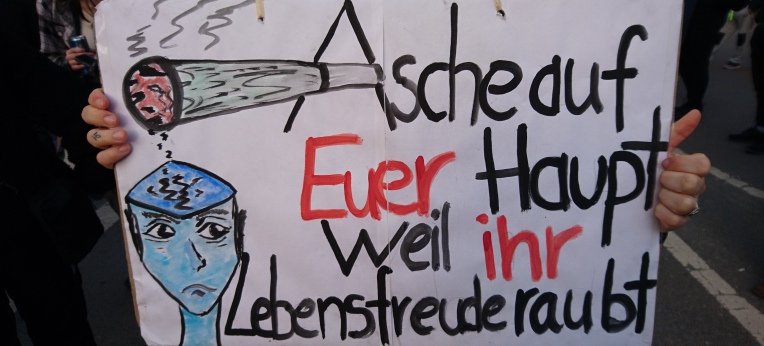 Asche auf
Euer Haupt
weil ihr
Lebensfreude raubt